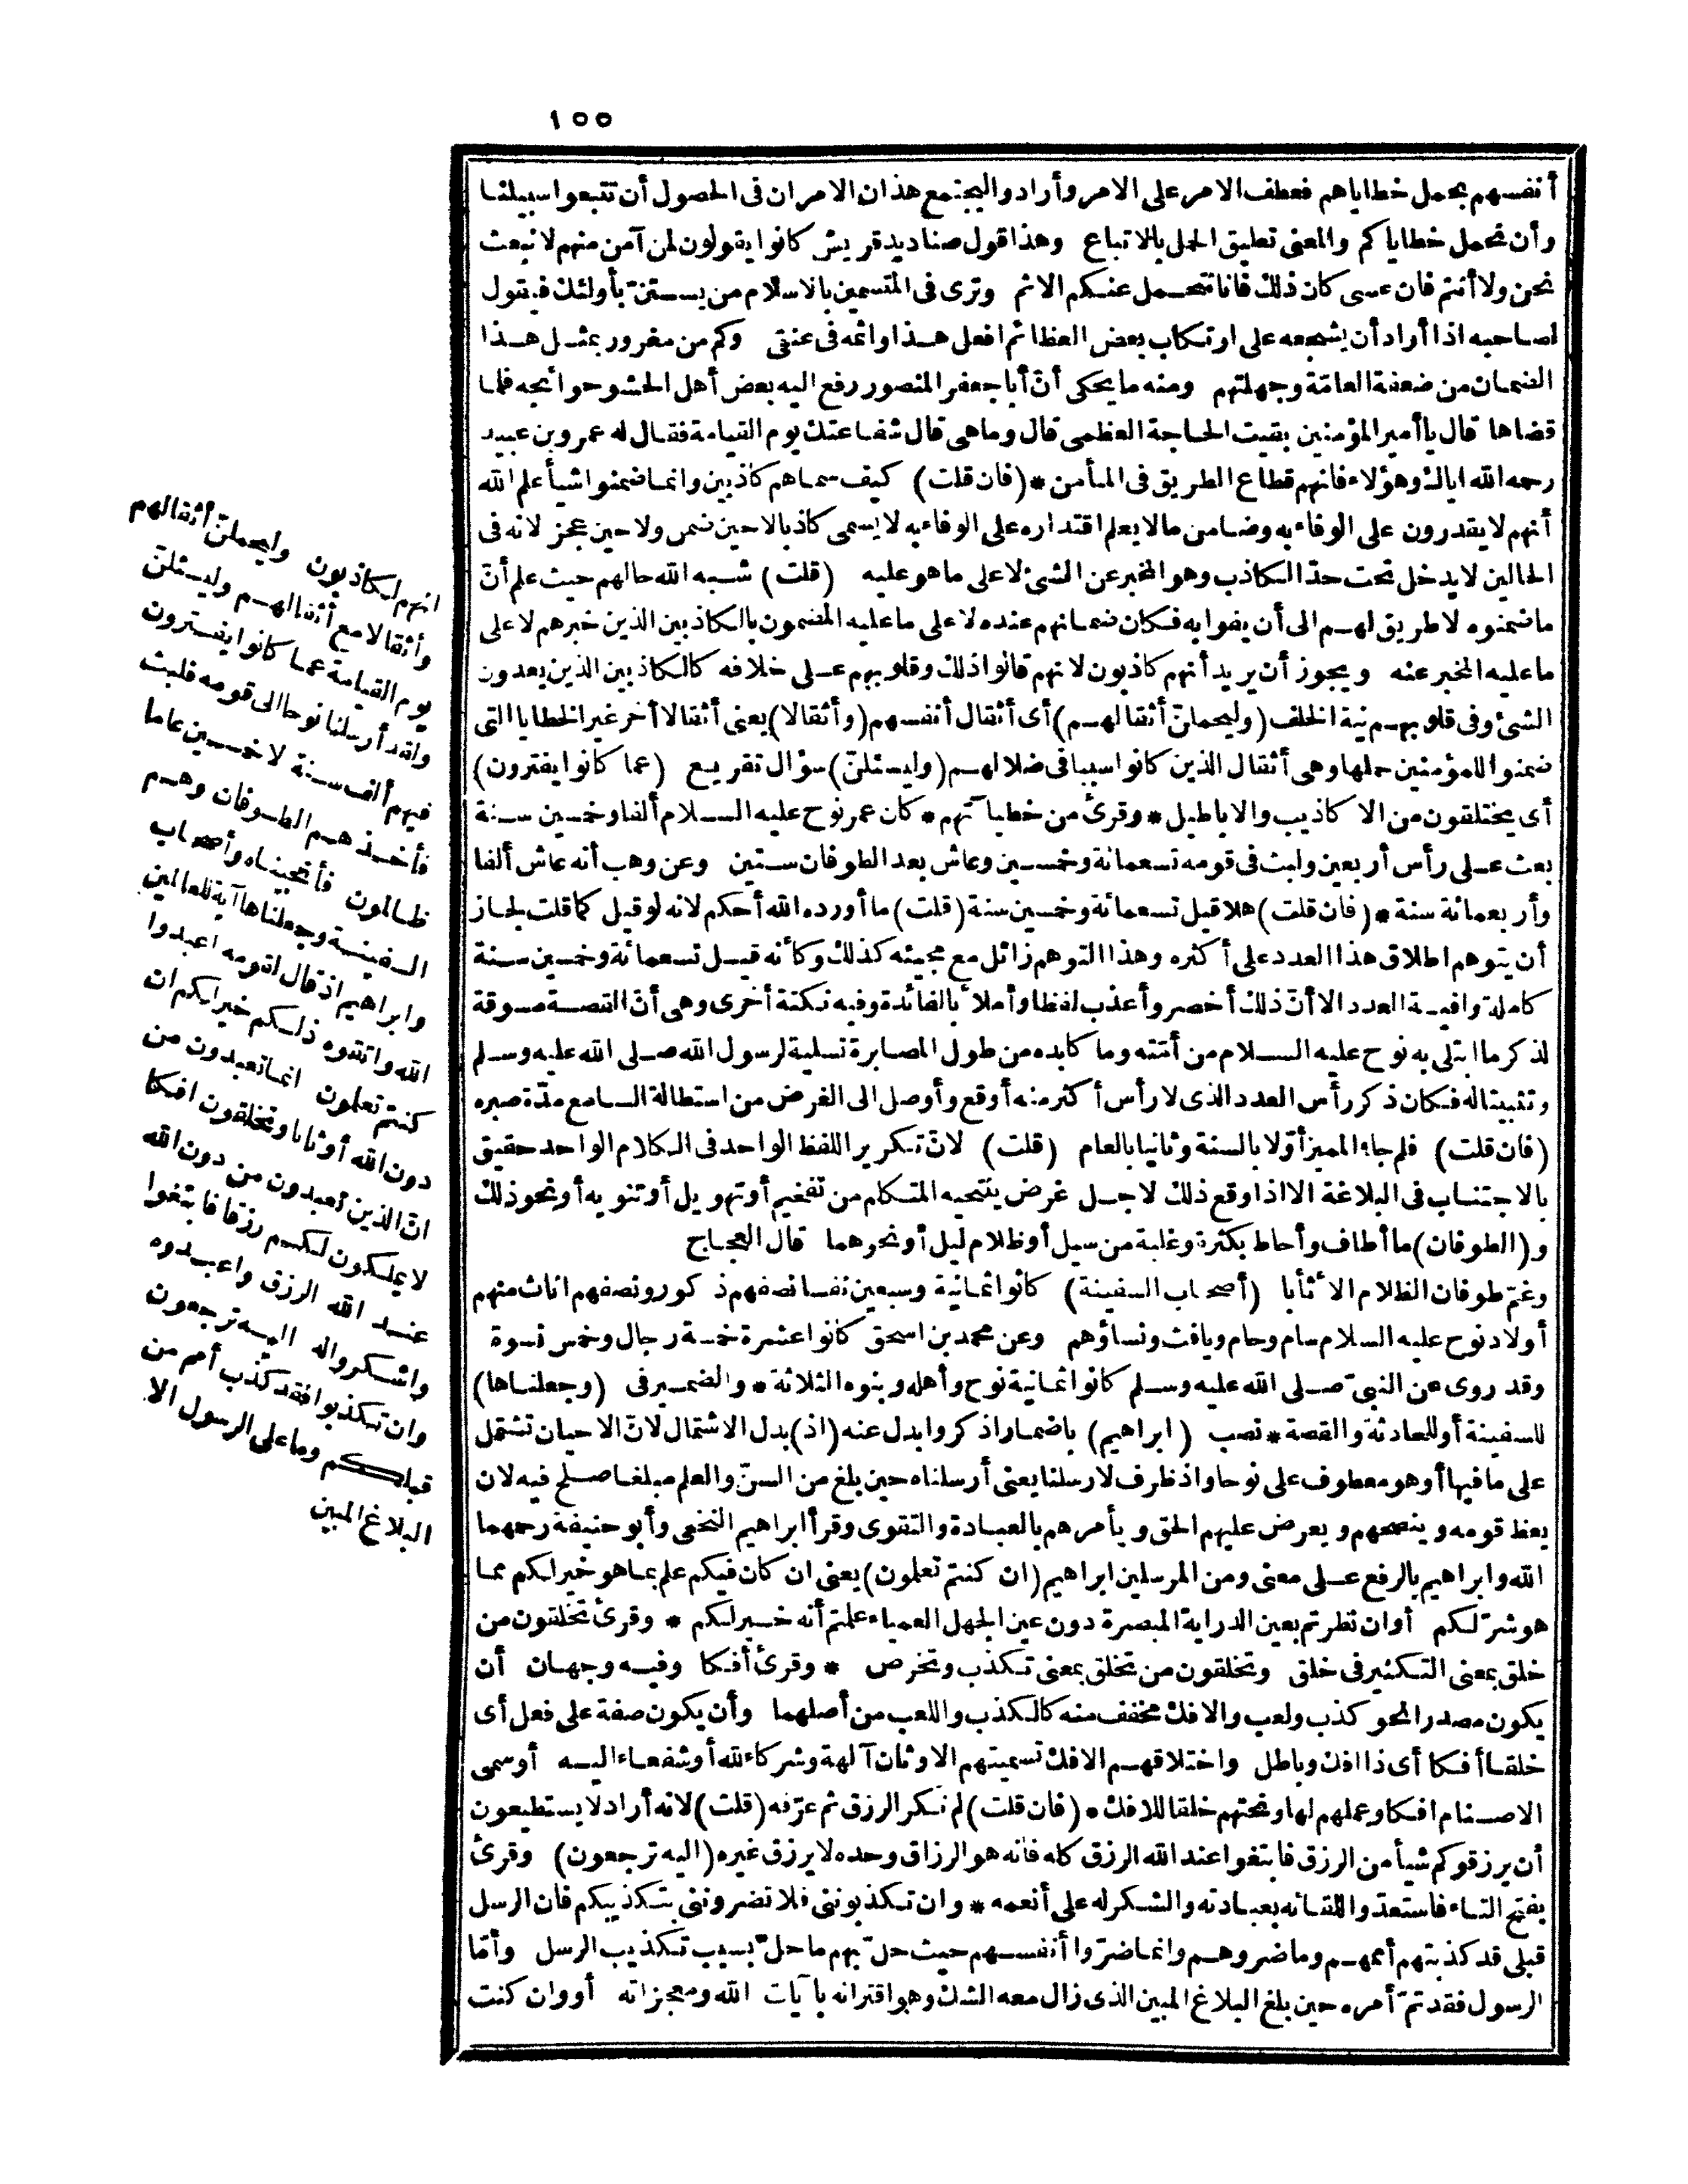 ١٥٥
أنفسهم بحمل خطاياهم فعطف الامر على الامر وأرادوا ليجتمع هذان الامران فى الحصول أن تتبعوا سبيلنا
وأن نحمل خطاياكم والمعنى تعليق الحمل بالاتباع وهذا قول صناديد قريش كانوا يقولون لمن آمن منهم لا نبعث
نحن ولا أنتم فان عسى كان ذلك فانا نتحمل عنكم الاثم وترى فى المتسمين بالاسلام من يستنّ بأولئك فيقول
لصاحبه اذا أراد أن يشجعه على ارتكاب بعض العظائم افعل هذا واثمه فى عنقى وكم من مغرور بمثل هذا
الضمان من ضعفة العامّة وجهلتهم ومنه ما يحكى أنّ أبا جعفر المنصور رفع اليه بعض أهل الحشو حوائجه فلما
قضاها قال يا أمير المؤمنين بقيت الحاجة العظمى قال وما هى قال شفاعتك يوم القيامة فقال له عمرو بن عبيد
رحمه الله اياك وهؤلاء فانهم قطاع الطريق فى المأمن * (فان قلت) كيف سماهم كاذبين وانما ضمنوا شيأ علم الله
أنهم لا يقدرون على الوفاء به وضامن ما لا يعلم اقتداره على الوفاء به لا يسمى كاذبا لا حين ضمن ولا حين عجز لانه فى
الحالين لا يدخل تحت حدّ الكاذب وهو المخبر عن الشئ لا على ما هو عليه (قلت) شبه الله حالهم حيث علم أنّ
ما ضمنوه لا طريق لهم الى أن يفوا به فكان ضمانهم عنده لا على ما عليه المضمون بالكاذبين الذين خبرهم لا على
ما عليه المخبر عنه ويجوز أن يريد أنهم كاذبون لانهم قالوا ذلك وقلوبهم على خلافه كالكاذبين الذين يعدون
الشئ وفى قلوبهم نية الخلف (وليحملنّ أثقالهم) أى أثقال أنفسهم (وأثقالا) يعنى أثقالا أخر غير الخطايا التى
ضمنوا للمؤمنين حملها وهى أثقال الذين كانوا سببا فى ضلالهم (وليسئلنّ) سؤال تقريع (عما كانوا يفترون)
أى يختلقون من الاكاذيب والاباطيل * وقرئ من خطيآتهم * كان عمر نوح عليه السلام ألفا وخمسين سنة
بعث على رأس أربعين ولبث فى قومه تسعمائة وخمسين وعاش بعد الطوفان ستين وعن وهب أنه عاش ألفا
وأربعمائة سنة * (فان قلت) هلا قيل تسعمائة وخمسين سنة (قلت) ما أورده الله أحكم لانه لو قيل كما قلت لجاز
أن يتوهم اطلاق هذا العدد على أكثره وهذا التوهم زائل مع مجيئه كذلك وكأنه قيل تسعمائة وخمسين سنة
كاملة وافية العدد الا أنّ ذلك أخصر وأعذب لفظا وأملأ بالفائدة وفيه نكتة أخرى وهى أنّ القصة مسوقة
لذكر ما ابتلى به نوح عليه السلام من أمّته وما كابده من طول المصابرة تسلية لرسول الله صلى الله عليه وسلم
وتثبيتا له فكان ذكر رأس العدد الذى لا رأس أكثر منه أوقع وأوصل الى الغرض من استطالة السامع مدّة صبره
(فان قلت) فلم جاء المميز أوّلا بالسنة وثانيا بالعام (قلت) لانّ تكرير اللفظ الواحد فى الكلام الواحد حقيق
بالاجتناب فى البلاغة الا اذا وقع ذلك لاجل غرض ينتحيه المتكلم من تفخيم أو تهويل أو تنويه أو نحو ذلك
و (الطوفان) ما أطاف وأحاط بكثرة وغلبة من سيل أو ظلام ليل أو نحوهما قال العجاج
وغمّ طوفان الظلام الاثأبا (أصحاب السفينة) كانوا ثمانية وسبعين نفسا نصفهم ذكور ونصفهم اناث منهم
أولاد نوح عليه السلام سام وحام ويافث ونساؤهم وعن محمد بن اسحق كانوا عشرة خمسة رجال وخمس نسوة
وقد روى عن النبىّ صلى الله عليه وسلم كانوا ثمانية نوح وأهله وبنوه الثلاثة * والضمير فى (وجعلناها)
للسفينة أو للحادثة والقصة * نصب (ابراهيم) باضمار اذكر وابدل عنه (اذ) بدل الاشتمال لانّ الاحيان تشتمل
على ما فيها أو هو معطوف على نوحا واذ ظرف لارسلنا يعنى أرسلناه حين بلغ من السنّ والعلم مبلغا صلح فيه لان
يعظ قومه وينصحهم ويعرض عليهم الحق ويأمرهم بالعبادة والتقوى وقرأ ابراهيم النخعى وأبو حنيفة رحمهما
الله وابراهيم بالرفع على معنى ومن المرسلين ابراهيم (ان كنتم تعلمون) يعنى ان كان فيكم علم بما هو خير لكم مما
هو شرّ لكم أو ان نظرتم بعين الدراية المبصرة دون عين الجهل العمياء علمتم أنه خير لكم * وقرئ تخلقون من
خلق بمعنى التكثير فى خلق وتخلقون من تخلق بمعنى تكذب وتخرص * وقرئ أفكا وفيه وجهان أن
يكون مصدرا نحو كذب ولعب والافك مخفف منه كالكذب واللعب من أصلهما وأن يكون صفة على فعل أى
خلقا أفكا أى ذا افك وباطل واختلاقهم الافك تسميتهم الاوثان آلهة وشركاء لله أو شفعاء اليه أو سمى
الاصنام افكا وعملهم لها ونحتهم خلقا للافك * (فان قلت) لم نكر الرزق ثم عرّفه (قلت) لانه أراد لا يستطيعون
أن يرزقوكم شيأ من الرزق فابتغوا عند الله الرزق كله فانه هو الرزاق وحده لا يرزق غيره (اليه ترجعون) وقرئ
بفتح التاء فاستعدّوا للقائه بعبادته والشكر له على أنعمه * وان تكذبوننى فلا تضروننى بتكذيبكم فان الرسل
قبلى قد كذبتهم أممهم وما ضروهم وانما ضرّوا أنفسهم حيث حلّ بهم ما حلّ بسبب تكذيب الرسل وأمّا
الرسول فقد تمّ أمره حين بلغ البلاغ المبين الذى زال معه الشك وهو اقترانه بآيات الله ومعجزاته أو وان كنت
انهم لكاذبون وليحملنّ أثقالهم
وأثقالا مع أثقالهم وليسئلنّ
يوم القيامة عما كانوا يفترون
ولقد أرسلنا نوحا الى قومه فلبث
فيهم ألف سنة الا خمسين عاما
فأخذهم الطوفان وهم
ظالمون فأنجيناه وأصحاب
السفينة وجعلناها آية للعالمين
وابراهيم اذ قال لقومه اعبدوا
الله واتقوه ذلكم خير لكم ان
كنتم تعلمون انما تعبدون من
دون الله أوثانا وتخلقون افكا
انّ الذين تعبدون من دون الله
لا يملكون لكم رزقا فابتغوا
عند الله الرزق واعبدوه
واشكروا له اليه ترجعون
وان تكذبوا فقد كذب أمم من
قبلكم وما على الرسول الا
البلاغ المبين